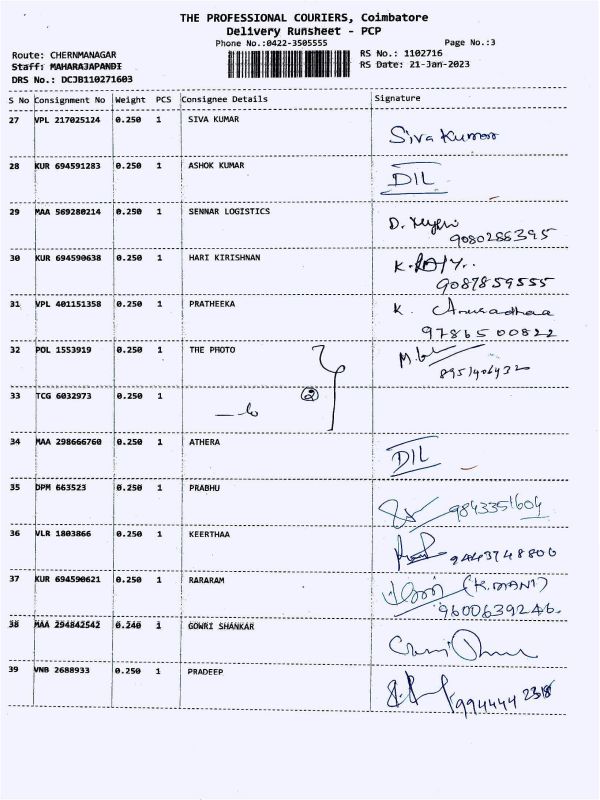 THE PROFESSIONAL COURIERS, Coimbatore
Delivery Runsheet - PCP
Phone No.:0422-3505555 Page No.:3
Route: CHERNMANAGAR RS No.: 1102716
Staff: MAHARAJAPANDI RS Date: 21-Jan-2023
DRS No.: DCJB110271603
S No Consignment No Weight PCS Consignee Details Signature
27 VPL 217025124 0.250 1 SIVA KUMAR
Siva Kumar
28 KUR 694591283 0.250 1 ASHOK KUMAR
DIL
29 MAA 569280214 0.250 1 SENNAR LOGISTICS
9080286395
30 KUR 694590638 0.250 1 HARI KIRISHNAN
9087859555
31 VPL 401151358 0.250 1 PRATHEEKA
K. Anuradhaa
9786500822
32 POL 1553919 0.250 1 THE PHOTO
8951406932
33 TCG 6032973 0.250 1
2
34 MAA 298666760 0.250 1 ATHERA
DIL
35 DPM 663523 0.250 1 PRABHU
9843351604
36 VLR 1803866 0.250 1 KEERTHAA
9443748800
37 KUR 694590621 0.250 1 RARARAM
(K.MANI)
9600639246.
38 MAA 294842542 0.240 1 GOWRI SHANKAR
39 VNB 2688933 0.250 1 PRADEEP
994444 2318